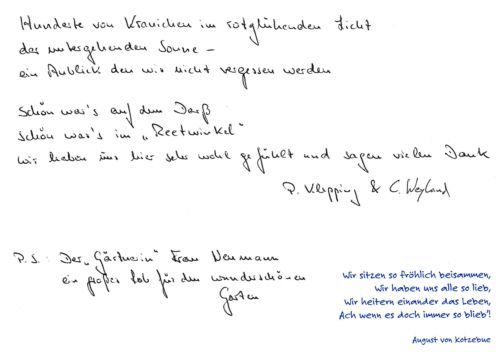 Hunderte von Kranichen im rotglühenden Licht
der untergehenden Sonne –
ein Anblick den wir nicht vergessen werden
Schön war's auf dem Darß
schön war's im „Reetwinkel"
wir haben uns hier sehr wohl gefühlt und sagen vielen Dank
P. Klepping & C. Weyland
P.S.: Der „Gärtnerin" Frau Neumann
ein großes Lob für den wunderschönen
Garten
Wir sitzen so fröhlich beisammen,
Wir haben uns alle so lieb,
Wir heitern einander das Leben,
Ach wenn es doch immer so blieb'!
August von Kotzebue